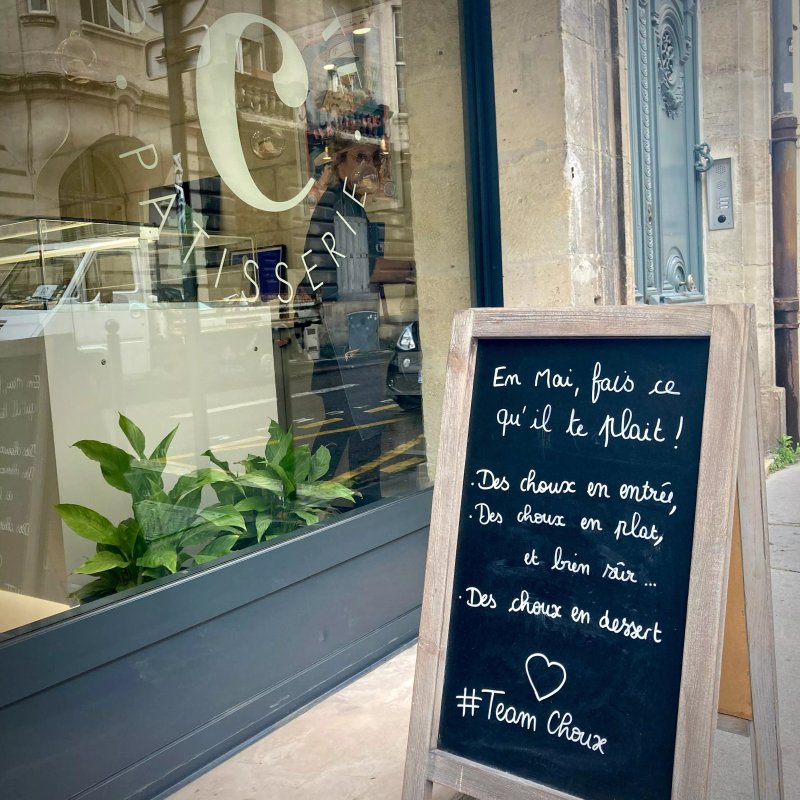 C
PÂTISSERIE
En Mai, fais ce
qu'il te plait !
.Des choux en entrée,
.Des choux en plat,
et bien sûr ...
.Des choux en dessert
#Team Choux